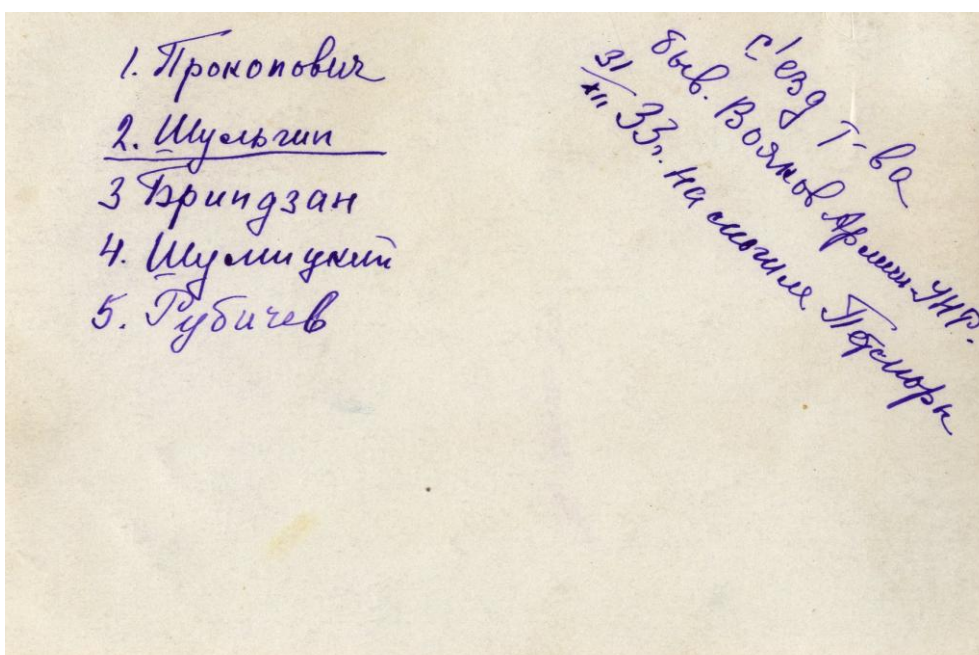 1. Прокопович
2. Шульгин
3 Бриндзан
4. Шумицкий
5. Рубичев
с'езд Т-ва
быв. Вояков Армии УНР.
31/XII 33г. на могиле Петлюры